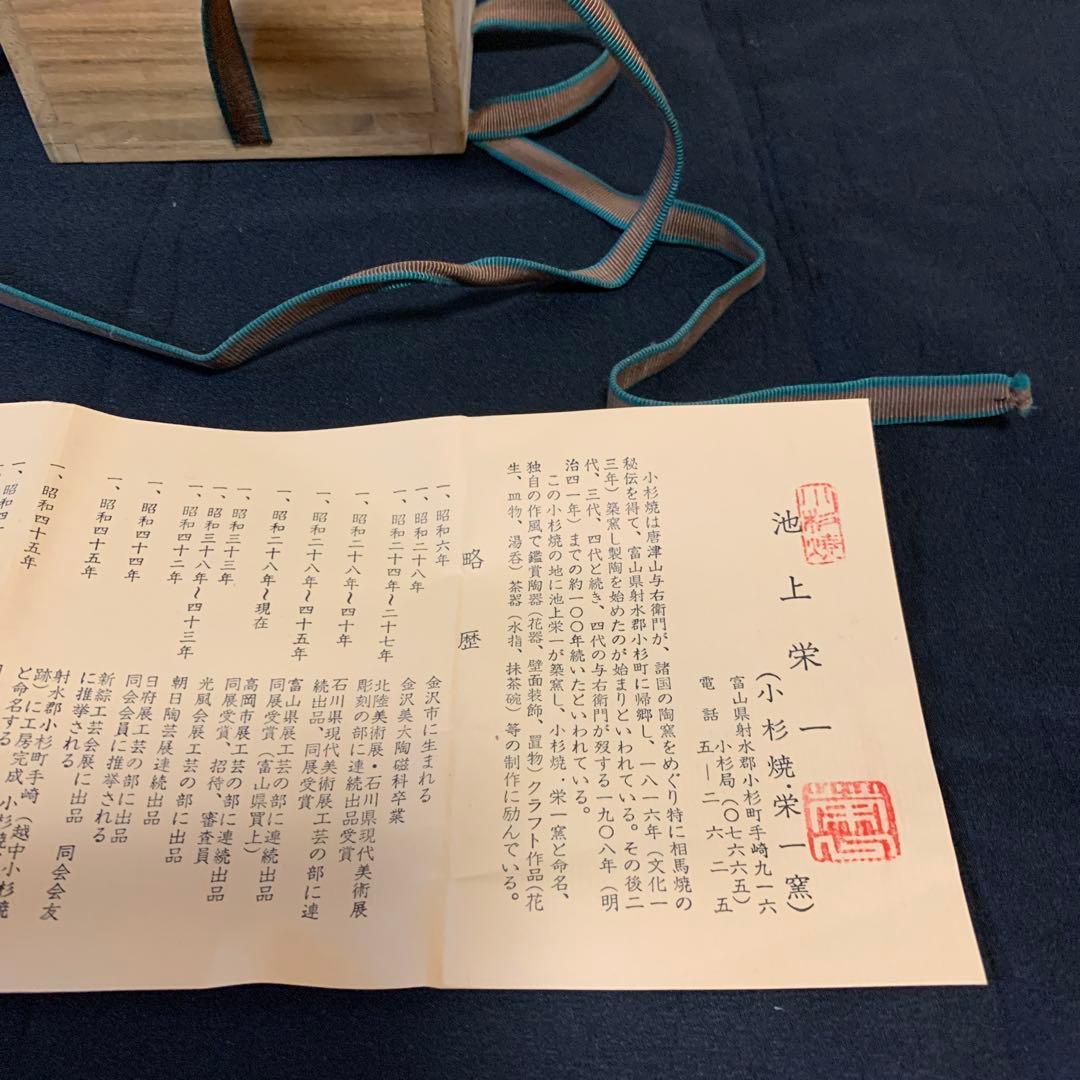 小杉焼
池上栄一
(小杉焼・栄一窯)
富山県射水郡小杉町手崎九一六
小杉局(〇七六六五)
電話 五―二六二五
小杉焼は唐津山与右衛門が、諸国の陶窯をめぐり特に相馬焼の
秘伝を得て、富山県射水郡小杉町に帰郷し、一八一六年(文化一
三年)築窯し製陶を始めたのが始まりといわれている。その後二
代、三代、四代と続き、四代の与右衛門が歿する一九〇八年(明
治四一年)までの約一〇〇年続いたといわれている。
この小杉焼の地に池上栄一が築窯し、小杉焼・栄一窯と命名、
独自の作風で鑑賞陶器(花器、壁面装飾、置物)クラフト作品(花
生、皿物、湯呑)茶器(水指、抹茶碗)等の制作に励んでいる。
略歴
一、昭和六年 金沢市に生まれる
一、昭和二十八年 金沢美大陶磁科卒業
一、昭和二十四年～二十七年 北陸美術展・石川県現代美術展
彫刻の部に連続出品受賞
一、昭和二十八年～四十年 石川県現代美術展工芸の部に連
続出品、同展受賞
一、昭和二十八年～四十五年 富山県展工芸の部に連続出品
同展受賞(富山県買上)
一、昭和二十八年～現在 高岡市展工芸の部に連続出品
同展受賞、招待、審査員
一、昭和三十三年 光風会展工芸の部に出品
一、昭和三十八年～四十三年 朝日陶芸展連続出品
一、昭和四十二年 日府展工芸の部に出品
同会会員に推挙される
一、昭和四十四年 新綜工芸会展に出品 同会会友
に推挙される
一、昭和四十五年 射水郡小杉町手崎(越中小杉焼
跡)に工房完成 小杉焼
と命名する
一、昭和四十五年
一、昭和四